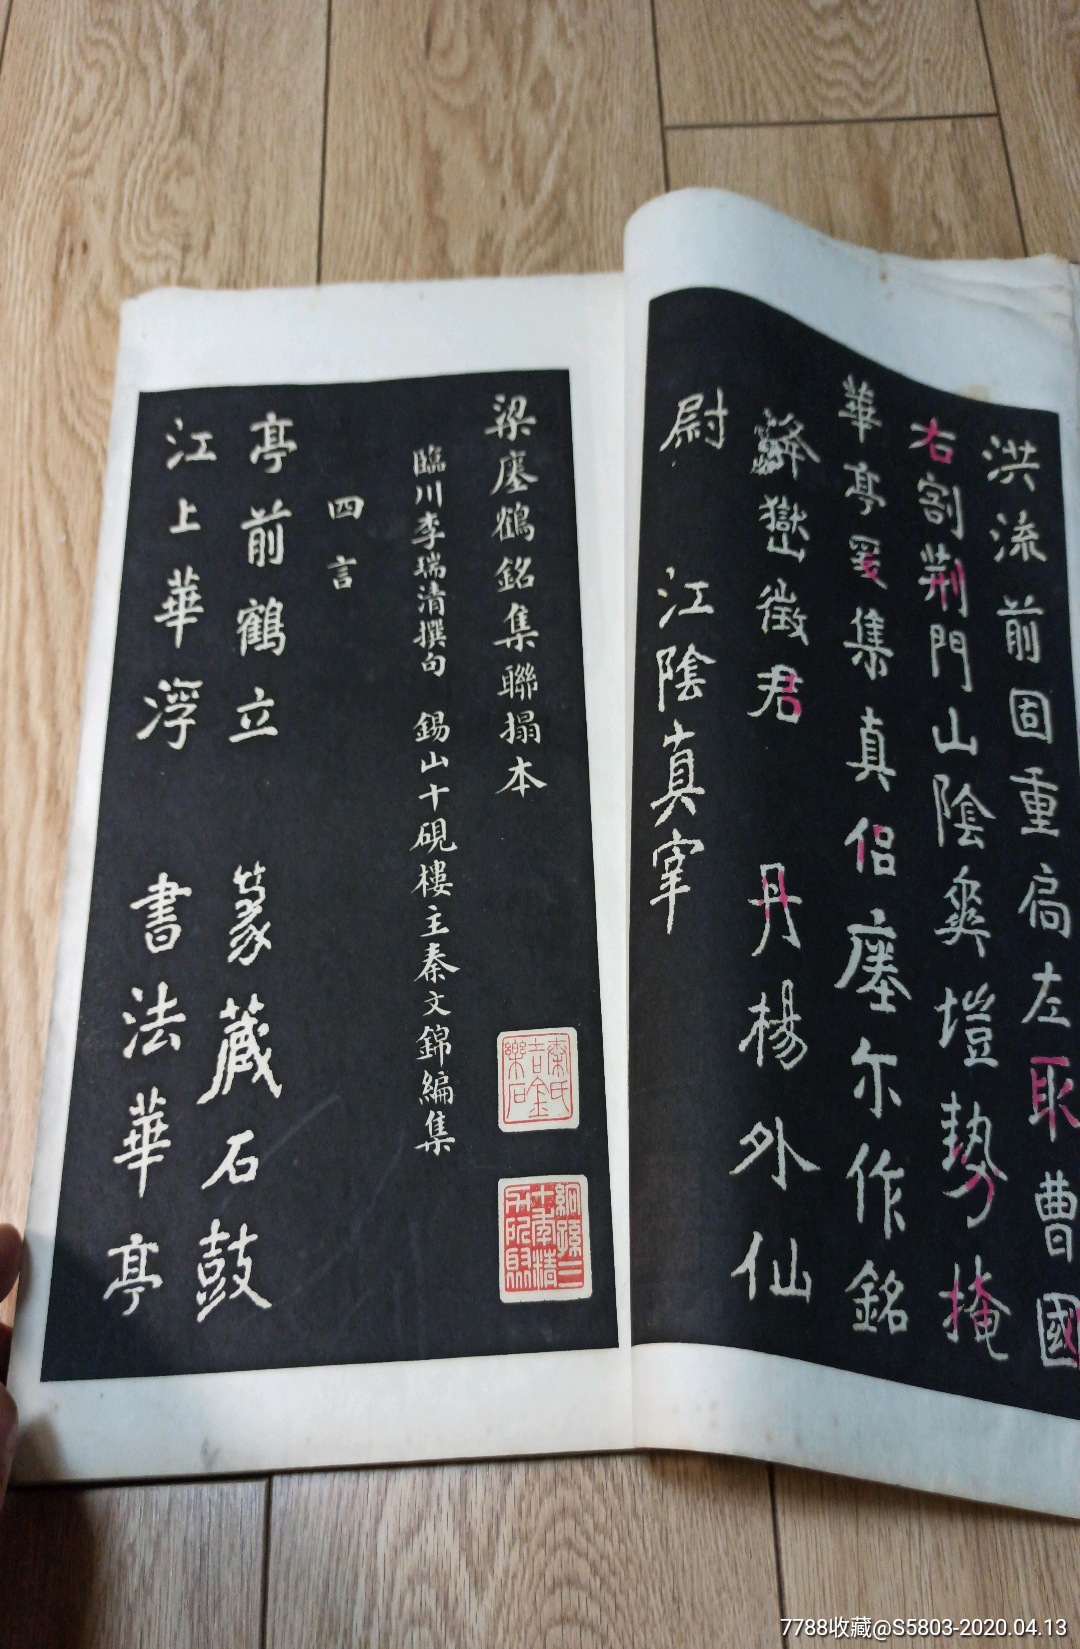 洪流前固重扃左取曹國
右割荆門山陰爽塏勢掩
華亭爰集真侣瘞尔作銘
夅嶽徵君 丹楊外仙
尉 江陰真宰
梁瘞鶴銘集聯搨本
臨川李瑞清撰句 錫山十硯樓主秦文錦編集
四言
亭前鶴立 篆藏石鼓
江上華浮 書法華亭
秦氏吉金樂石
7788收藏@S5803-2020.04.13